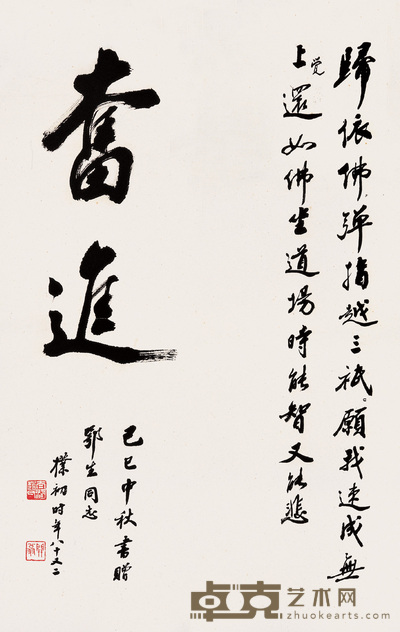 歸依佛，彈指越三祇。願我速成無
上觉還如佛坐道場時能智又能悲
奮進
己巳中秋書贈
鄂生同志
樸初时年八十又二
卓克艺术网
www.zhuokearts.com